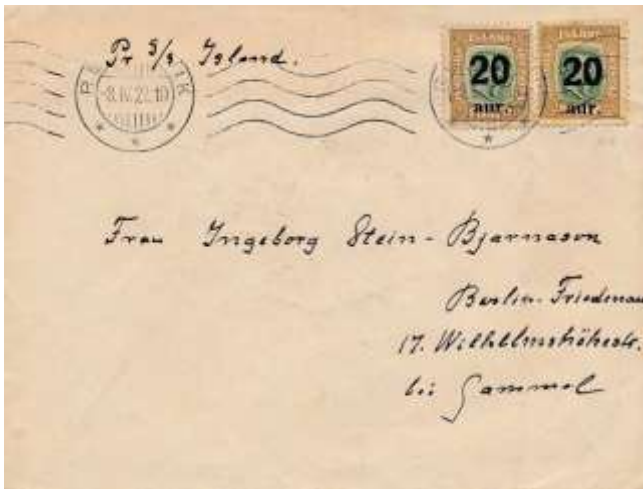 Pr s/s Island.
ÍSLAND ÍSLAND
20 20
aur. aur.
Frau Ingeborg Stein-Bjarnason
Berlin-Friedenau
17. Wilhelmshöhestr.
bei Gammel